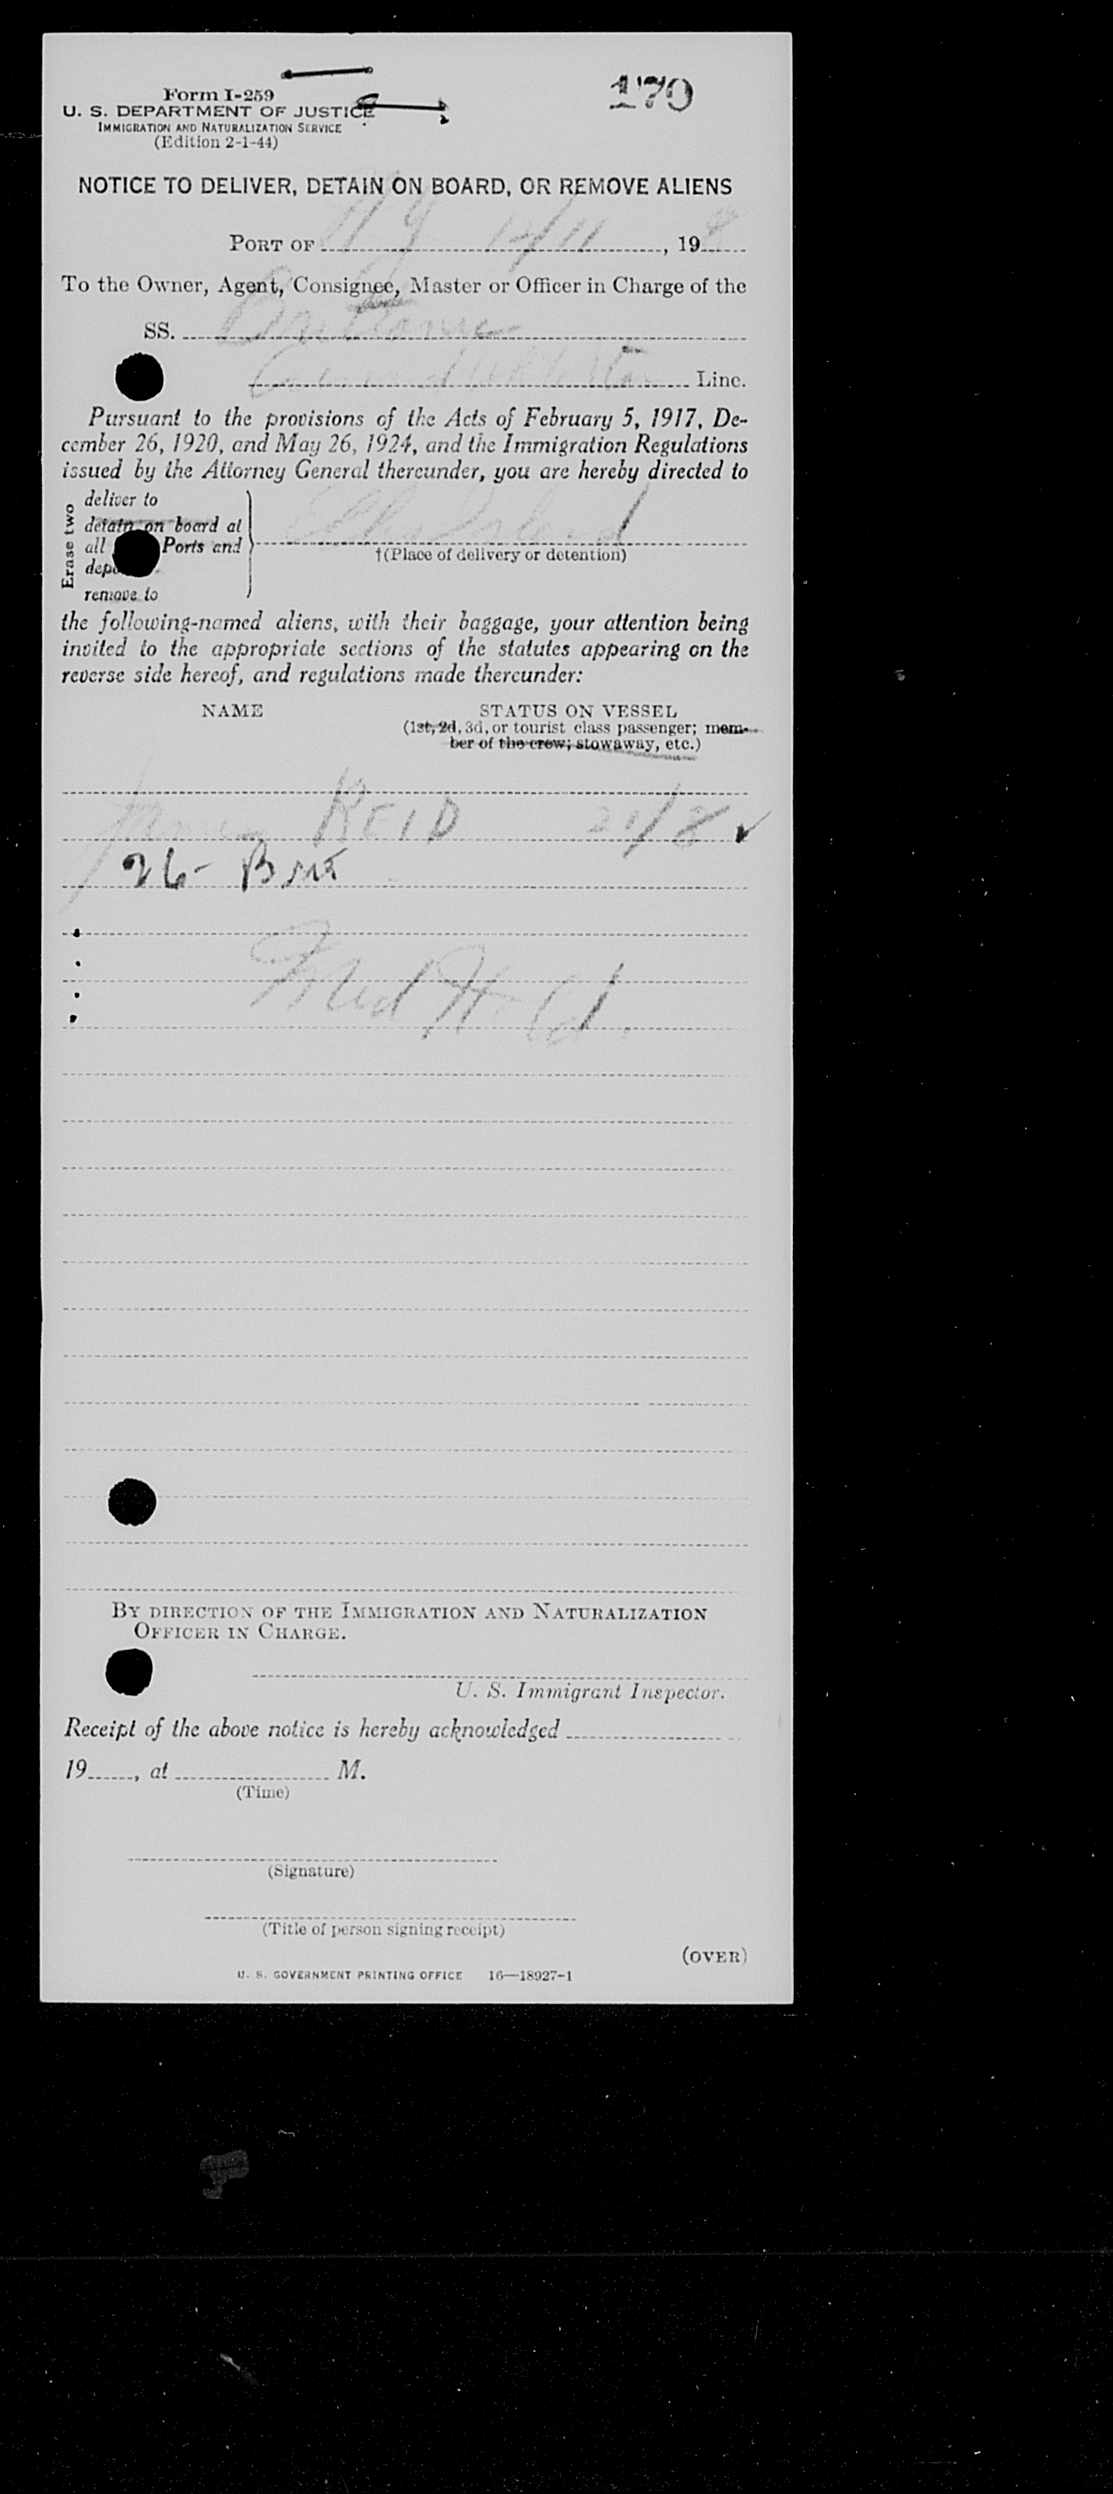 170
Form I-259
U. S. DEPARTMENT OF JUSTICE
IMMIGRATION AND NATURALIZATION SERVICE
(Edition 2-1-44)
NOTICE TO DELIVER, DETAIN ON BOARD, OR REMOVE ALIENS
PORT OF N Y 12/11, 19
To the Owner, Agent, Consignee, Master or Officer in Charge of the
SS.
Line.
Pursuant to the provisions of the Acts of February 5, 1917, De-
cember 26, 1920, and May 26, 1924, and the Immigration Regulations
issued by the Attorney General thereunder, you are hereby directed to
Erase two
deliver to
detain on board at
all Ports and
remove to
Ellis Island
†(Place of delivery or detention)
the following-named aliens, with their baggage, your attention being
invited to the appropriate sections of the statutes appearing on the
reverse side hereof, and regulations made thereunder:
NAME STATUS ON VESSEL
(1st, 2d, 3d, or tourist class passenger; mem-
ber of the crew; stowaway, etc.)
REID 21/8 ✓
26- Brit
Med
BY DIRECTION OF THE IMMIGRATION AND NATURALIZATION
OFFICER IN CHARGE.
U. S. Immigrant Inspector.
Receipt of the above notice is hereby acknowledged
19, at M.
(Time)
(Signature)
(Title of person signing receipt)
(OVER)
U. S. GOVERNMENT PRINTING OFFICE 16—18927-1